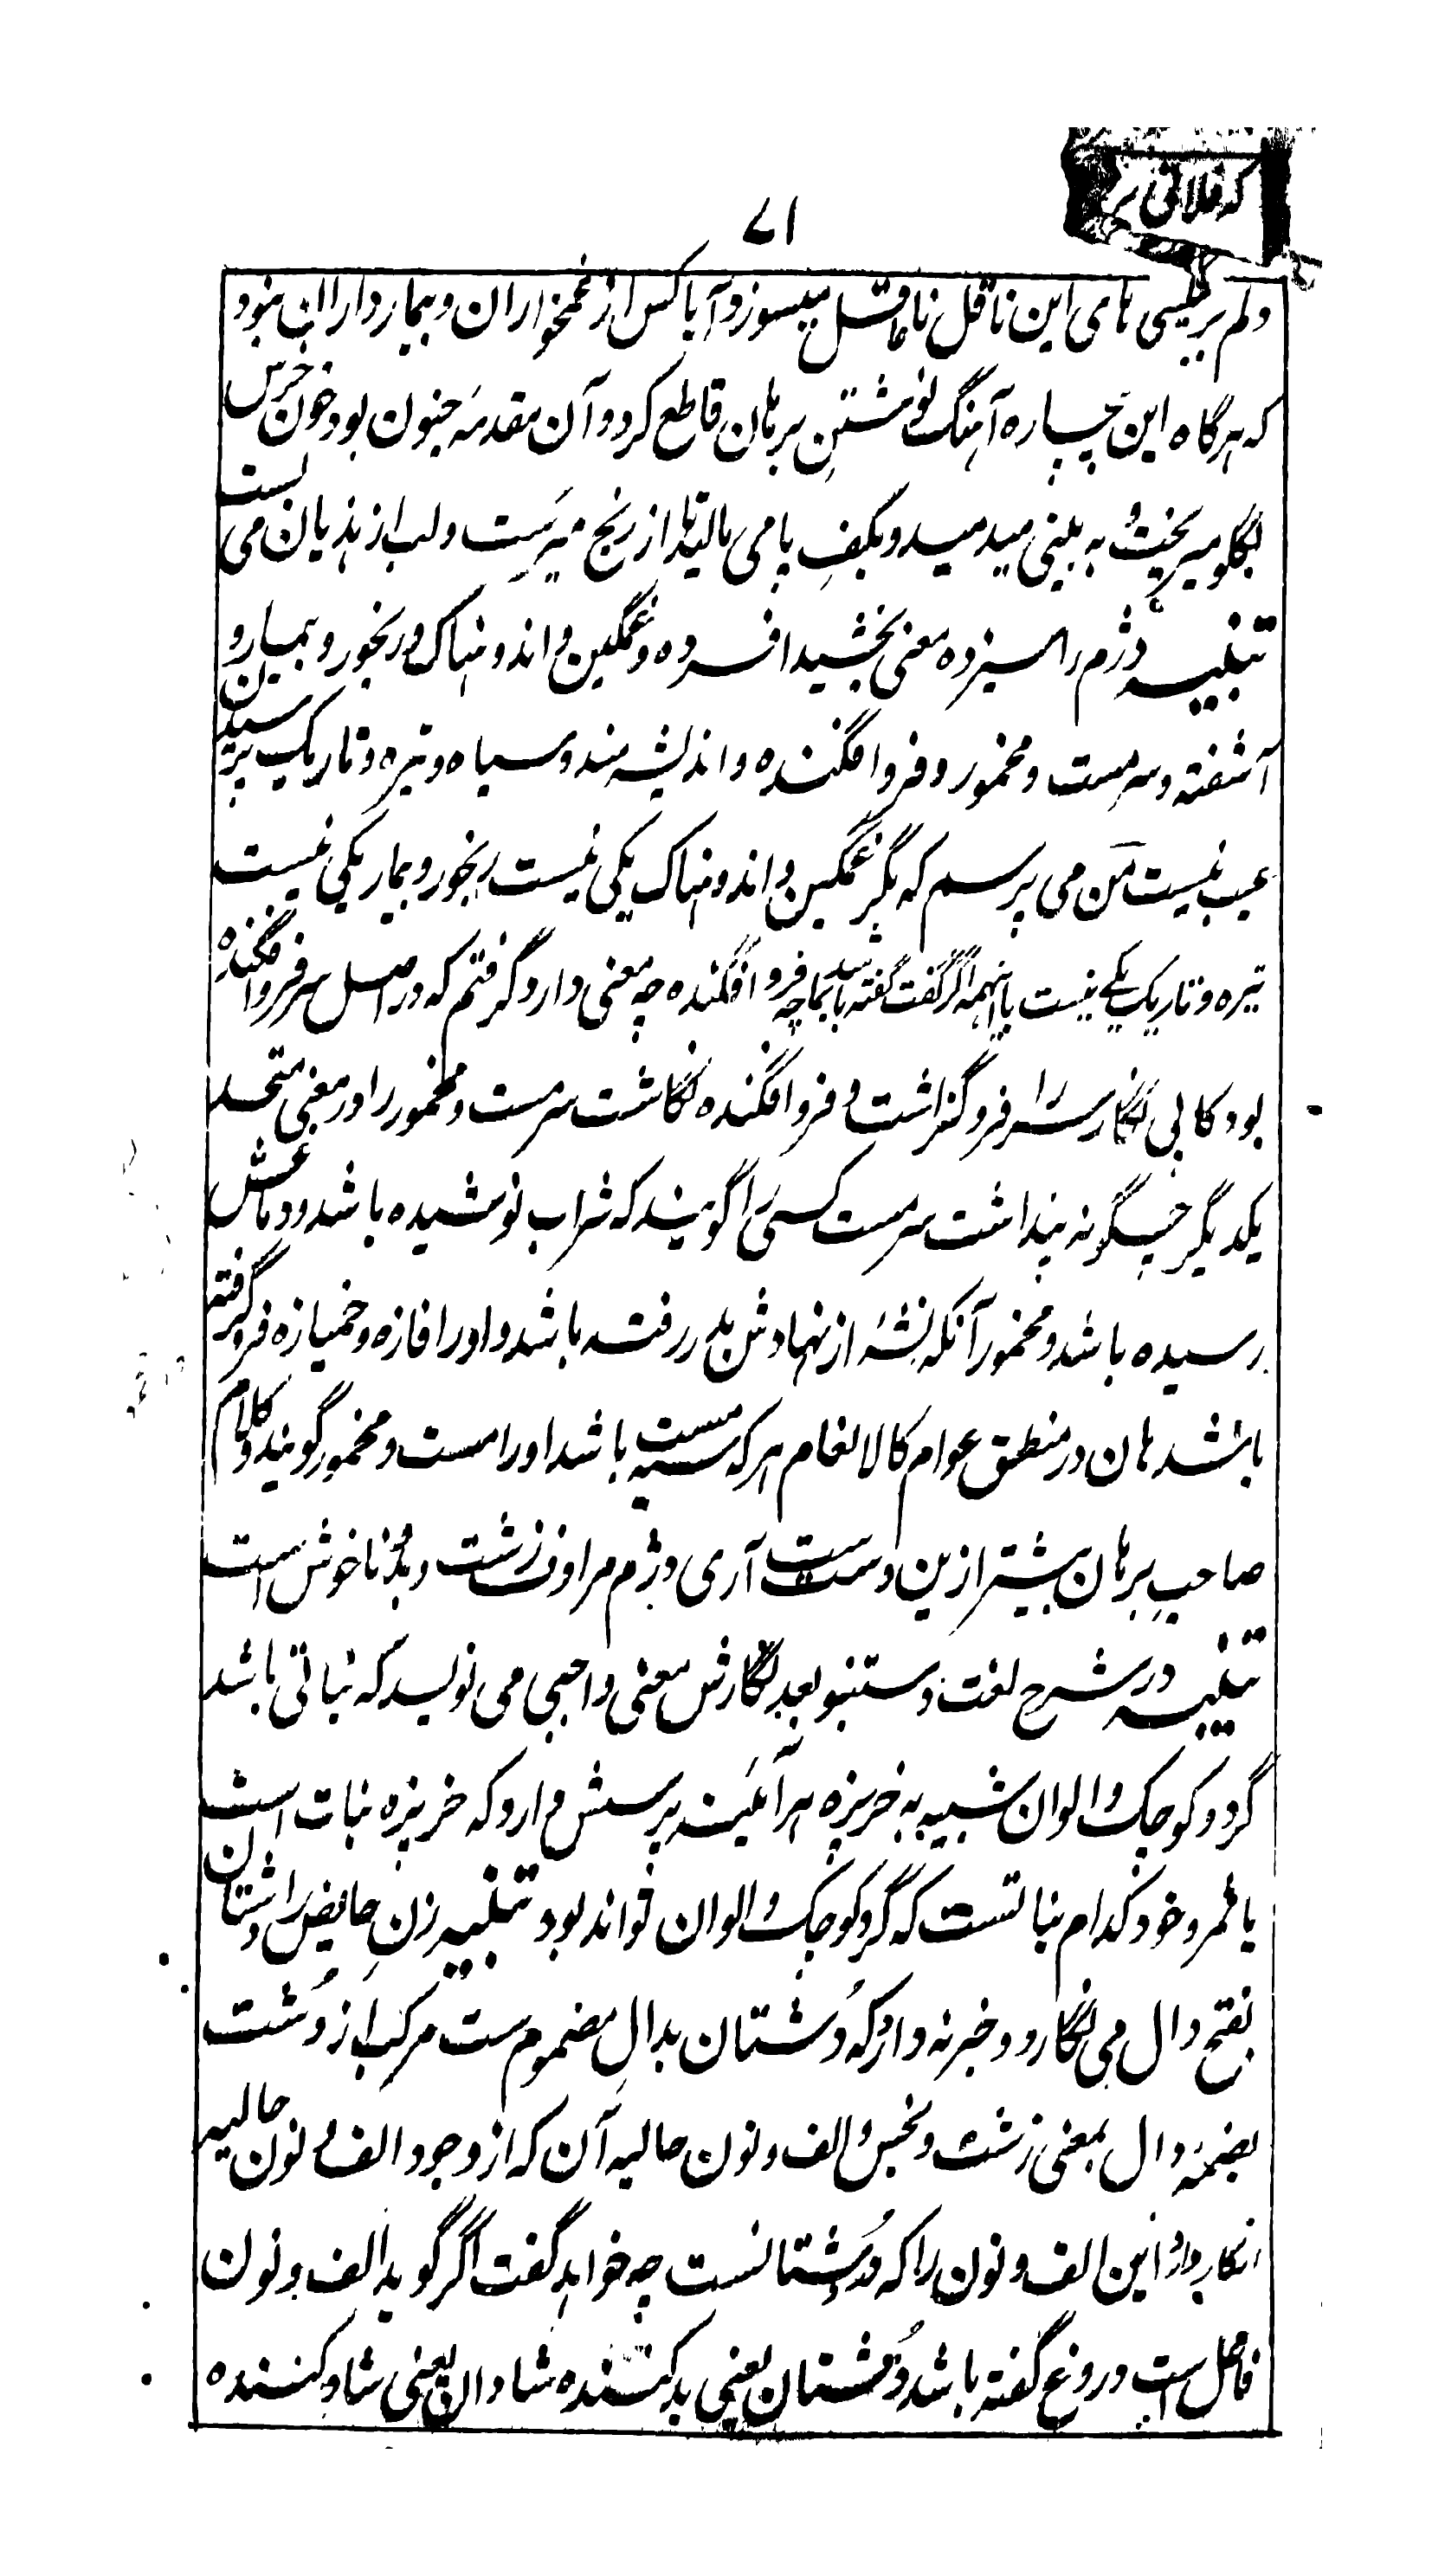 که فلانی بر
۷۱
دلم بر بیکسی های این ناقل ناعاقل میسوزد آیا کس از غمخواران و بیمارداران نبود
که هرگاه این بیچاره آهنگ نوشتن برهان قاطع کرد و آن مقدمه جنون بود خون خرس
بگلو میریخت و به بینی میدمید و بکف پا می مالید تا از رنج میرست و لب از هذیان می بست
تنبیه دژم را سیزده معنی بخشید افسرده و غمگین و اندوهناک و رنجور و بیمار و
آشفته و سرمست و مخمور و فروافگنده و اندیشه مند و سیاه و تیره و تاریک پرسیدن
عیب نیست من می پرسم که مگر غمگین و اندوهناک یکی نیست رنجور و بیمار یکی نیست
تیره و تاریک یکی نیست با اینهمه اگر گفت گفته باشد بما چه فروافگنده چه معنی دارد گرفتم که در اصل سر فروافگنده
بود کاپی نگار سر را فروگذاشت و فروافگنده نگاشت سرمست و مخمور را در معنی متحد
یکدیگر چگونه پنداشت سرمست کسی را گویند که شراب نوشیده باشد و دماغش
رسیده باشد و مخمور آنکه نشهٔ از نهادش بدر رفته باشد و او را فازه و خمیازه فروگرفته
باشد هان در منطق عوام کالانعام هر که سیه مست باشد او را مست و مخمور گویند و کلام
صاحب برهان بیشتر ازین دست ست آری دژم مرادف زشت و بد و ناخوش است
تنبیه در شرح لغت دستنبو بعد نگارش معنی واجبی می نویسد که نباتی باشد
گرد و کوچک و الوان شبیه به خربزه هر آئینه پرسش دارد که خربزه نبات است
یا ثمر و خود کدام نباتست که گرد و کوچک و الوان تواند بود تنبیه زن حایض را دشتان
بفتح دال می نگارد و خبر نه دارد که دُشتان بدال مضموم ست مرکب از دُشت
بضمهٔ دال بمعنی زشت و نجس و الف و نون حالیه آن که از وجود الف و نون حالیه
انکار دارد این الف و نون را که در دُشتانست چه خواهد گفت اگر گوید الف و نون
فاعل است دروغ گفته باشد دُشتان یعنی بد کننده شادان یعنی شاد کننده